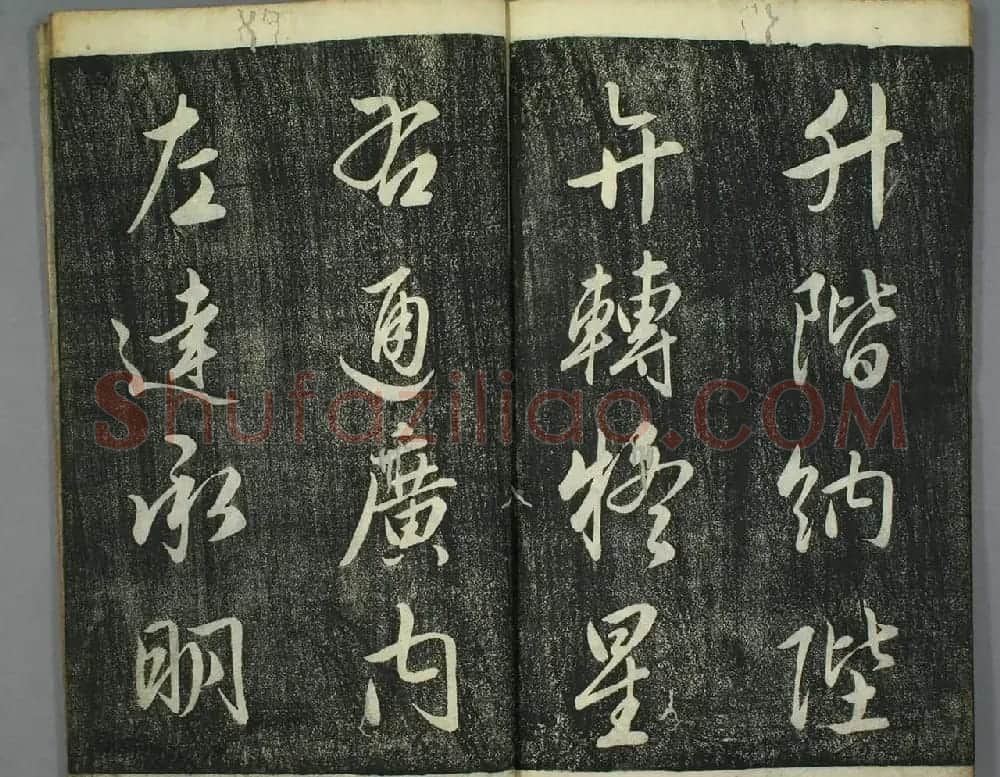 升階納陛
弁轉疑星
右通廣內
左達承明
Shufaziliao.COM